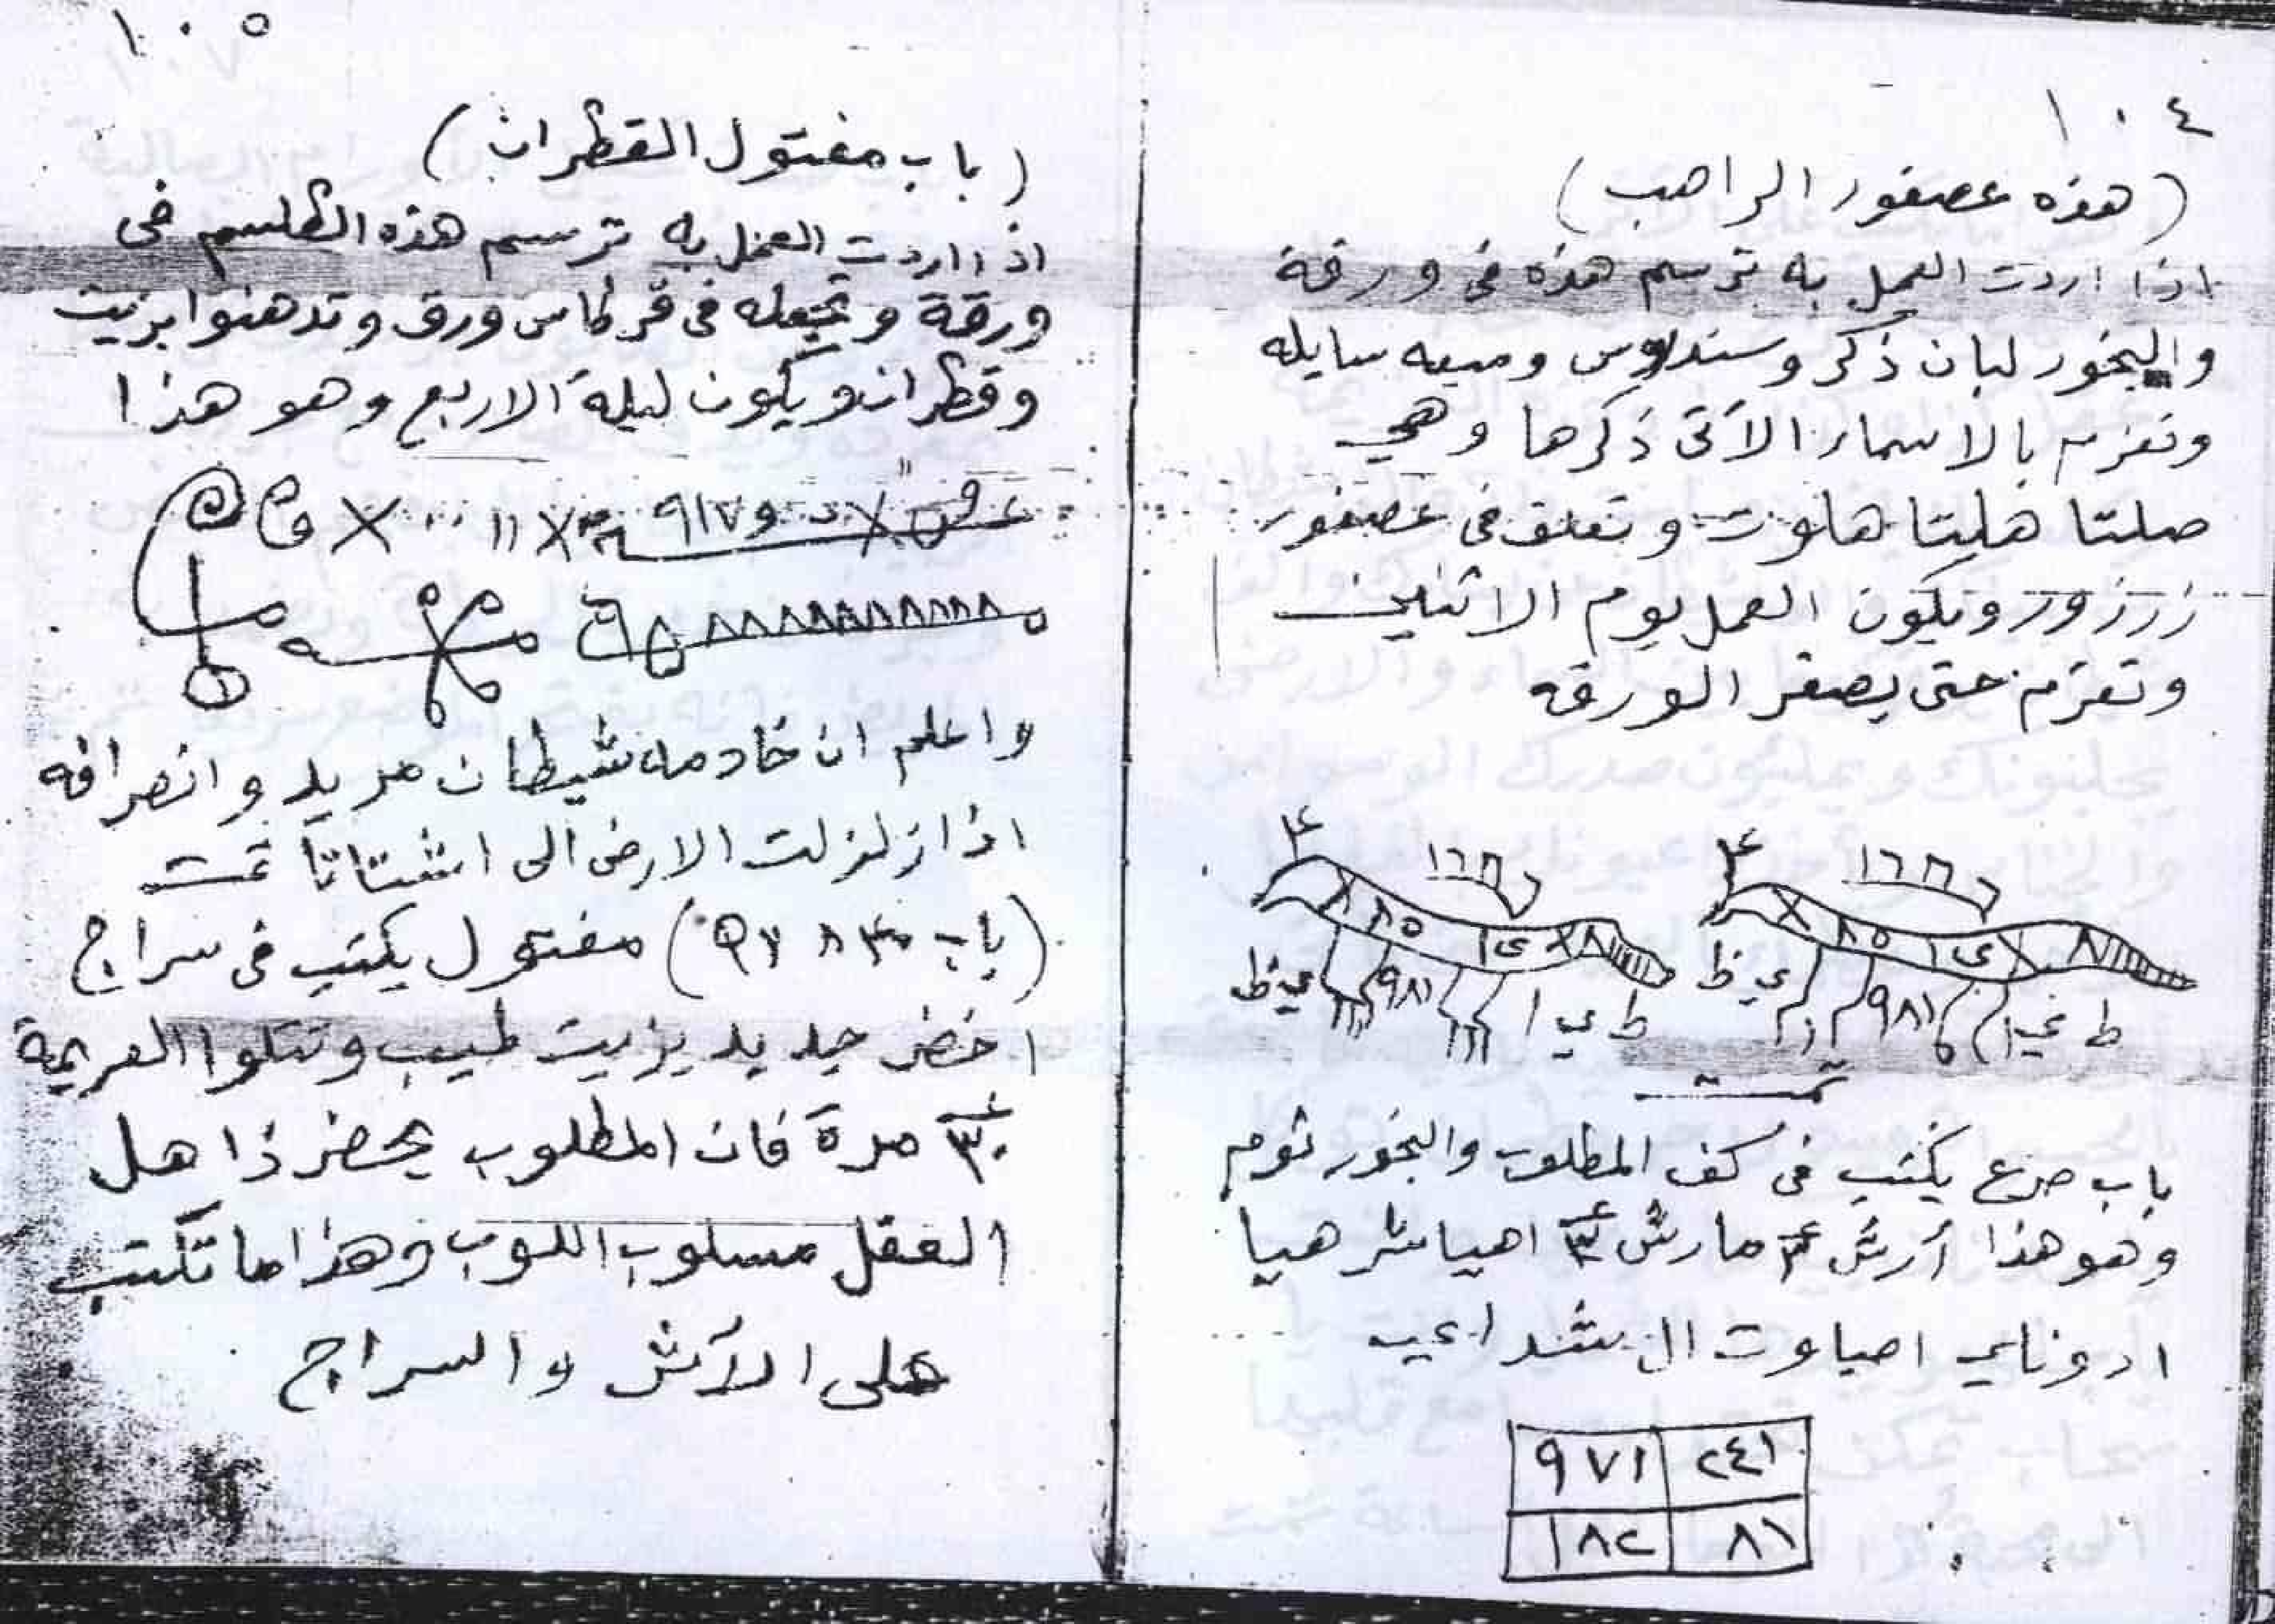 ١٠٤
(هذه عصفور الراهب)
اذا اردت العمل به ترسم هذه فى ورقة
والبخور لبان ذكر وسندروس وميعه سايله
وتعزم بالاسماء الآتى ذكرها وهي
صلتا هلتا هلوت وتعلق فى عصفور
زرزور ويكون العمل يوم الاثنين
وتعزم حتى يصفر الورقه
١٦٨٢
١٦٨٢
٩٨١
٩٨١
تمت
باب صرع يكتب فى كف المطلوب والبخور ثوم
وهو هذا أرش ٣ مارش ٣ اهيا شر هيا
ادوناي اصباوت ال شداي
٢٤١ ٩٧١
٨١ ١٨٢
١٠٥
(باب مفتول القطران)
اذا اردت العمل به ترسم هذه الطلسم فى
ورقة وتجعله فى قرطاس ورق وتدهنوا بزيت
وقطران ويكون ليلة الاربع وهو هذا
واعلم ان خادمه شيطان مريد وانصرافه
اذا زلزلت الارض الى اشتاتا تمت
(باب) مفتول يكتب فى سراج
اخضر جديد بزيت طيب وتتلوا العزيمة
٣٠ مرة فان المطلوب يحضر ذاهل
العقل مسلوب اللوب وهذا ما تكتب
على الآتش والسراج